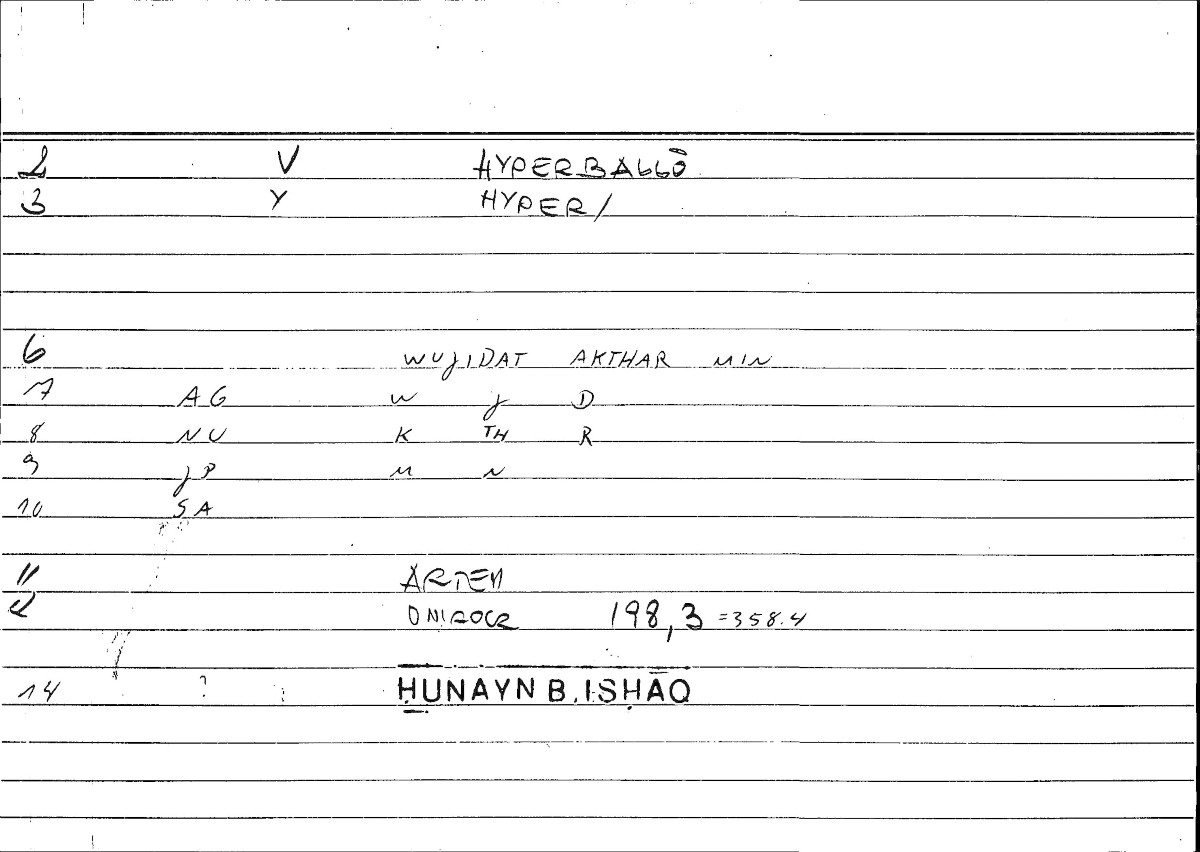 2 V HYPERBALLŌ
3 Y HYPER/
6 WUJIDAT AKTHAR MIN
7 AG W J D
8 NU K TH R
9 JP M N
10 SA
11 ARTEM
12 ONIROCR 198,3 =358.4
14 ? ḤUNAYN B. ISḤĀQ